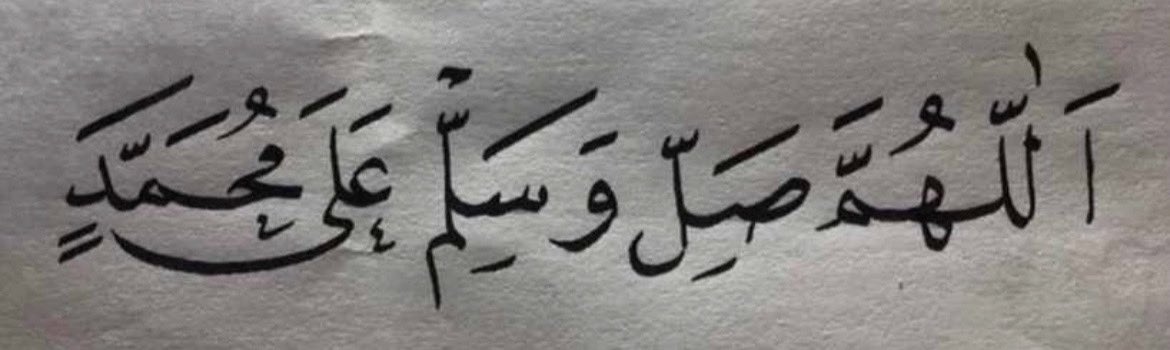 اَللّٰهُمَّ صَلِّ وَسَلِّمْ عَلَى مُحَمَّدٍ